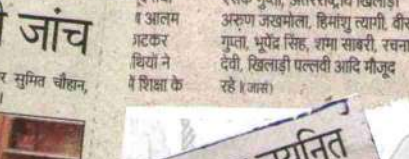 जांच
र सुमित चौहान,
आलम
टकर
थियों ने
में शिक्षा के
अरुण जखमोला, हिमांशु त्यागी,
गुप्ता, भूपेंद्र सिंह, शमा साबरी, रचना
देवी, खिलाड़ी पल्लवी आदि मौजूद
रहे।(जासं)